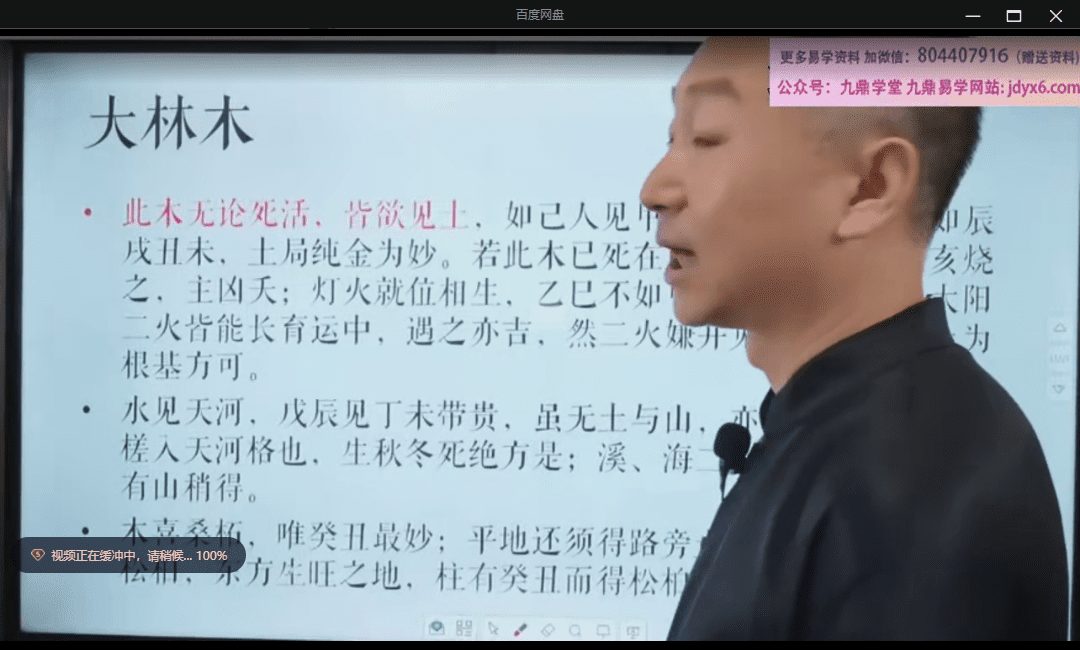 百度网盘
更多易学资料 加微信：804407916（赠送资料)
公众号：九鼎学堂 九鼎易学网站: jdyx6.com
大林木
• 此木无论死活，皆欲见土，如己人见 如辰
戌丑未，土局纯金为妙。若此木已死在 亥烧
之，主凶夭；灯火就位相生，乙巳不如 太阳
二火皆能长育运中，遇之亦吉，然二火嫌并见 为
根基方可。
• 水见天河，戊辰见丁未带贵，虽无土与山，亦
槎入天河格也，生秋冬死绝方是；溪、海二
有山稍得。
• 木喜桑柘，唯癸丑最妙；平地还须得路旁
视频正在缓冲中，请稍候... 100%
松柏，东方生旺之地，柱有癸丑而得松柏